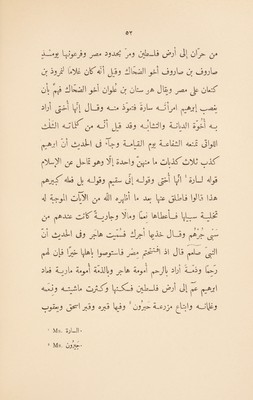 ٥٢
من حرّان إلى أرض فلسطين ومرّ بحدود مصر وفرعونها يومئذٍ
صاروف بن صاروف أخو الضحّاك وقيل أنّه كان غلامًا لنمروذ بن
كنعان على مصر ويقال هو سنان بن علوان أخو الضحّاك فهمّ بأن
يغصب إبرهيم امرأته سارة فتعوّذ منه وقال إنّها أختى أراد
به أُخوّة الديانة والتشابه وقد قيل أنّه من كلماته الثلث
اللواتى تمنعه الشفاعة يوم القيامة وجآء فى الحديث أنّ ابرهيم
كذب ثلاث كذبات ما منهنّ واحدة إلّا وهو يماحل عن الإسلام
قوله لسارة إنّها أختى وقوله إنّى سقيم وقوله بل فعله كبيرهم
هذا قالوا فاطلق عنها بعد ما أظهره الله من الآيآت الموجبة له
تخلية سبيلها فأعطاها نعمًا ومالًا وجارية كانت عندهم من
سبى جُرهُم وقال خذيها آجرك فسُمّيت هاجر وفى الحديث أنّ
النبىّ صلّعم قال اذا افتتحتم مصر فاستوصوا بأهلها خيرًا فإن لهم
رَحِمًا وذمّةً أراد بالرحم أمومة هاجر وبالذمّة أمومة مارية فعاد
ابرهيم عم إلى أرض فلسطين فسكنها وكثرت ماشيته ونَعَمه
وغلمانه وابتاع مزرعة حَبْرُون وفيها قبره وقبر اسحق ويعقوب
¹ Ms. السارة.
² Ms. جَيْرُون.